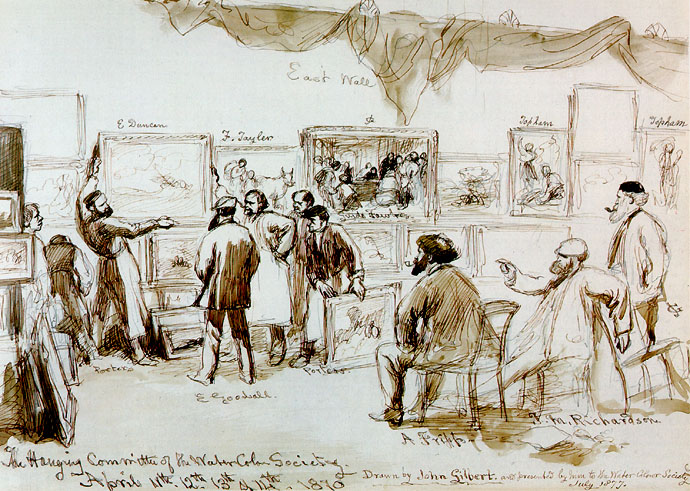 East Wall
E Duncan
F. Tayler
Topham
Topham
Porters
E Goodall.
Porters
A Fripp.
T. M. Richardson
The Hanging Committee of the Water Color Society.
April 11th. 12th. 13th & 14th. 1876
Drawn by John Gilbert. and presented by him to the Water Colour Society
July 1877.